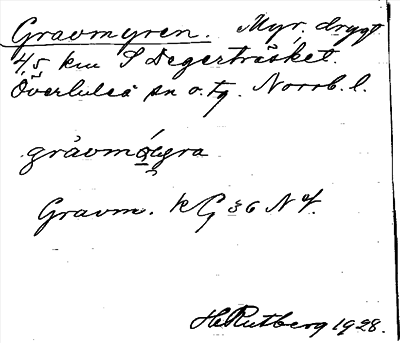 Gravmyren. Myr, drygt
4,5 km S Degerträsket.
Överluleå sn o. tg. Norrb. l.
Gravm. k G 36 N 4.
H. Rutberg 1928.